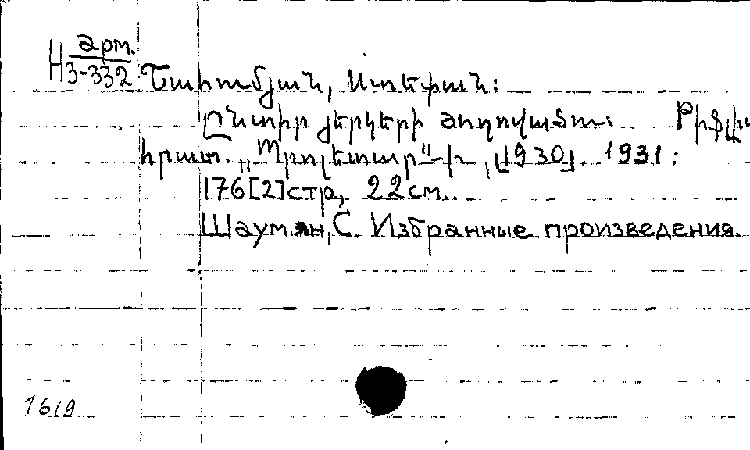 Арм.
Н 3-332
Շահումյան, Ստեփան:
Ընտիր յերկերի ժողովածու: Թիֆլիս
հրատ. „Պրոլետար"-ի, [1930]. 1931:
176[2]стр, 22см.
Шаумян, С. Избранные произведения.
1619